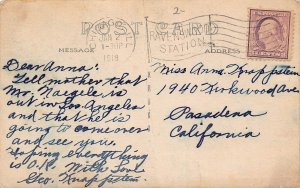 2
POST CARD
MESSAGE
ADDRESS
JUN
1-30P
1918
STATION
Dear Anna:
Tell mother that
Mr. Naegele is
out in Los Angeles
and that he is
going to come over
and see you.
Hoping everything
is O.K. With love
Geo. Knappsten.
Miss Anna Knappsten
1940 Kirkwood Ave
Pasadena
California